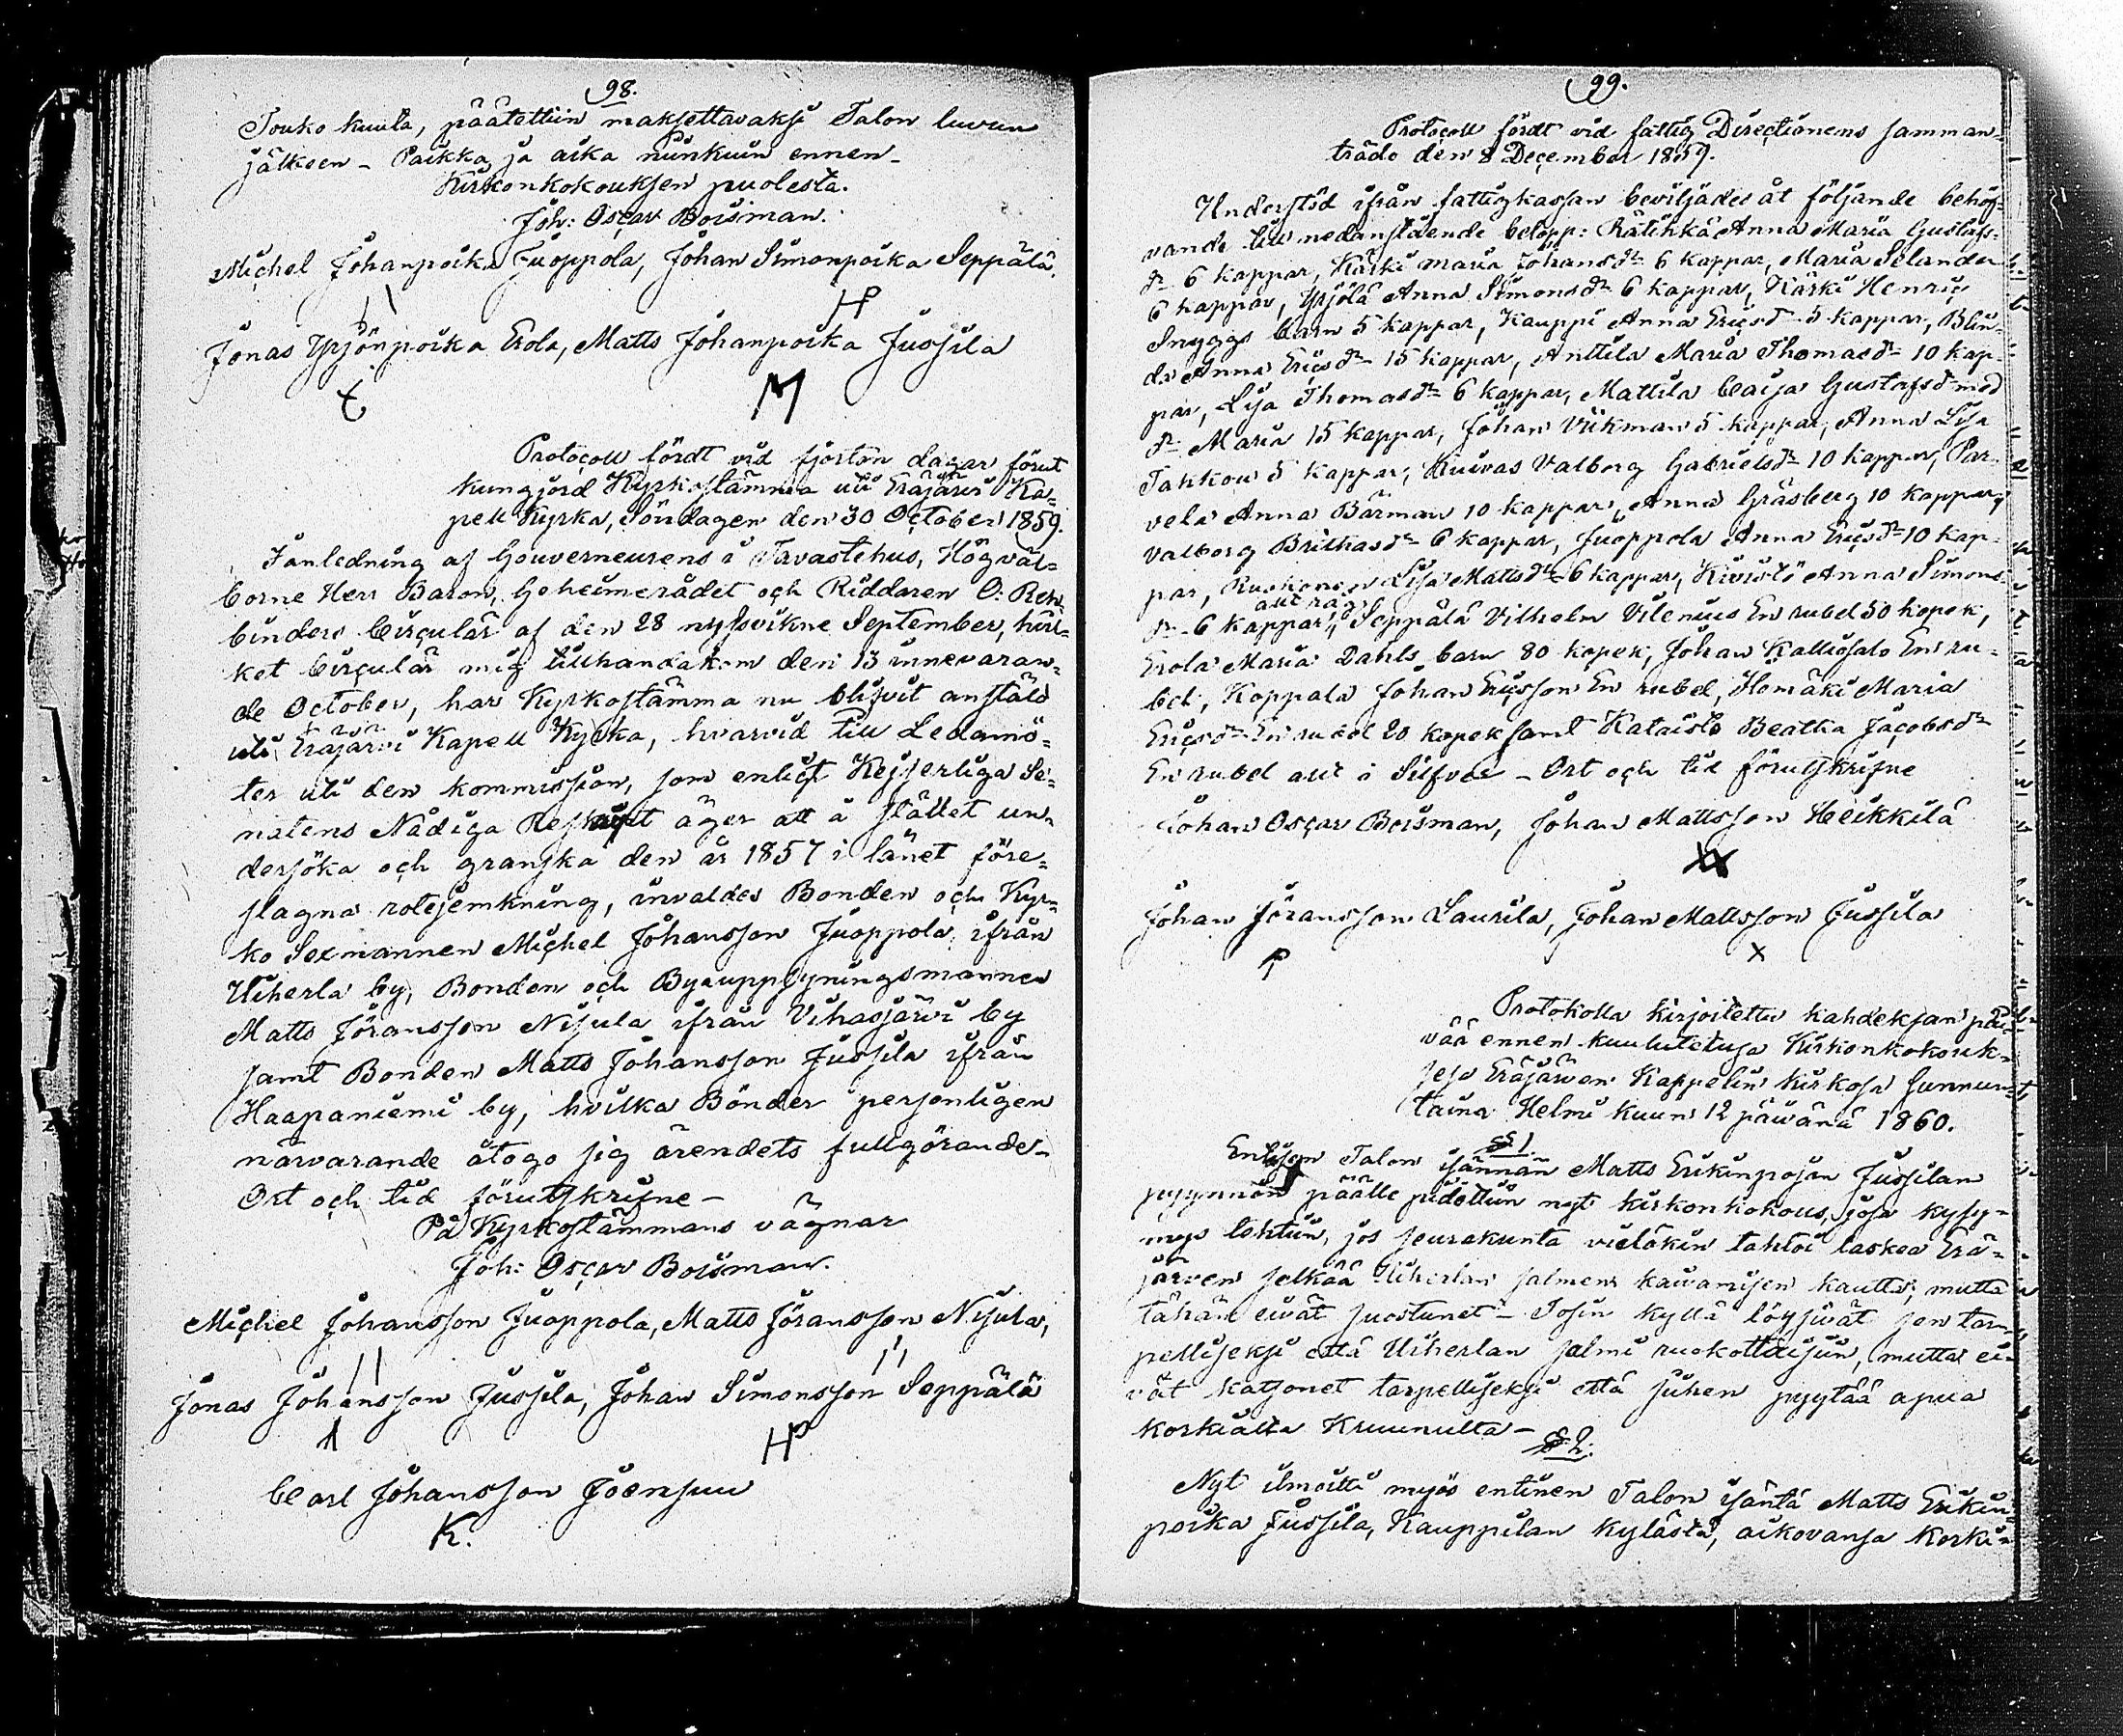 98.
Touko kuuta, päätettiin maksettavaksi Talon luvun
jälkeen - Paikka ja aika niinkuin ennen -
Kirkonkokouksen puolesta.
Joh: Oscar Boisman.
Michel Johanpoika Juoppola, Johan Simonpoika Seppälä,
Jonas Yrjönpoika Erola, Matts Johanpoika Jussila
M
Protocoll fördt vid fjorton dagar förut
kungjord Kyrkostämma uti Eräjärvi Ka=
pell Kyrka, Söndagen den 30 October 1859.
I anledning af Gouverneurens i Tavastehus, Högväl=
borne Herr Baron, Geheimerådet och Riddaren O: Reh=
binders Circulär af den 28 nyssvikne September, hvil=
ket Circulär mig tillhandakom den 13 innevaran=
de October, har Kyrkostämma nu blifvit anstäld
uti Eräjärvi Kapell Kyrka, hvarvid till Ledamö=
ter uti den kommission, som enligt Kejserliga Se=
natens Nådiga Reskript äger att å stället un=
dersöka och granska den år 1857 i länet före=
slagna rotejemkning, invaldes Bonden och Kyr=
ko Sexmannen Michel Johansson Juoppola ifrån
Uiherla by, Bonden och Byauppsyningsmannen
Matts Jöransson Nisula ifrån Vihasjärvi by
samt Bonden Matts Johansson Jussila ifrån
Haapaniemi by, hvilka Bönder personligen
närvarande åtogo sig ärendets fullgörande -
Ort och tid förutskrifne -
På Kyrkostämmans vägnar
Joh: Oscar Boisman.
Michel Johansson Juoppola, Matts Jöransson Nisula,
Jonas Johansson Jussila, Johan Simonsson Seppälä
Carl Johansson Joensuu
K.
99.
Protocoll fördt vid fattig Directionens samman=
träde den 8 December 1859.
Understöd ifrån fattigkassan beviljades åt följande behöf=
vande till nedanstående belopp: Rätikkä Anna Maria Gustafs=
dr 6 kappar, Kärki Maria Johansdr 6 kappar, Maria Selander
6 kappar, Yrjölä Anna Simonsdr 6 kappar, Kärki Henric
Snyggs barn 5 kappar, Kauppi Anna Ericsdr 5 kappar, Blin=
da Anna Ericsdr 15 kappar, Anttila Maria Thomasdr 10 kap=
par, Lisa Thomasdr 6 kappar, Mattila Caisa Gustafsdr med
dr Maria 15 kappar, Johan Vikman 5 kappar, Anna Lisa
Takkou 5 kappar, Kuivas Valborg Gabrielsdr 10 kappar, Par=
vela Anna Bärman 10 kappar, Anna Gräsberg 10 kappar,
Valborg Britkasdr 6 kappar, Juoppola Anna Ericsdr 10 kap=
par, Ruokonen Lisa Mattsdr 6 kappar, Kivistö Anna Simons=
allt råg
dr 6 kappar, Seppälä Vilhelm Vilenius En rubel 50 kopek,
Erola Maria Dahls barn 80 kopek, Johan Kalliosalo En ru=
bel, Koppala Johan Ericsson En rubel, Homäki Maria
Ericsdr En rubel 20 kopek samt Kataisto Beatha Jacobsdr
En rubel allt i Silfver - Ort och tid förutskrifne
Johan Oscar Boisman, Johan Mattsson Heikkilä
Johan Jöransson Laurila, Johan Mattsson Jussila
x
Protokolla kirjoitettu kahdeksan päi=
vää ennen kuulutetusa Kirkonkokouk=
sesa Eräjärven Kappelin kirkosa sunnun=
taina Helmi kuun 12 päivänä 1860.
§ 1
Entisen Talon isännän Matts Erikinpojan Jussilan
pyynnön päälle pidettiin nyt kirkonkokous, josa kysy=
mys tehtiin, jos seurakunta vieläkin tahtoi laskea Erä=
järven selkää Uiherlan salmen kaivamisen kautta; mutta
tähän eivät suostunet - Tosin kyllä löysivät sen tar=
pelliseksi että Uiherlan salmi ruokottaisiin, mutta ei=
vät katsonet tarpelliseksi että siihen pyytää apua
korkialta Kruunulta -
§ 2.
Nyt ilmoitti myös entinen Talon isäntä Matts Erikin=
poika Jussila, Kauppilan kylästä, aikovansa Korki=